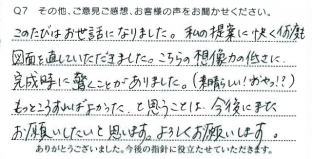 Q7 その他、ご意見ご感想、お客様の声をお聞かせください。
このたびはお世話になりました。私の提案に快く何度も
図面を直していただきました。こちらの想像力の低さに、
完成時に驚くことがありました。(素晴らしい!おやっ!?)
もっとこうすればよかった、と思うことは、今後にまた
お願いしたいと思います。よろしくお願いします。
ありがとうございました。今後の指針に役立たせていただきます。